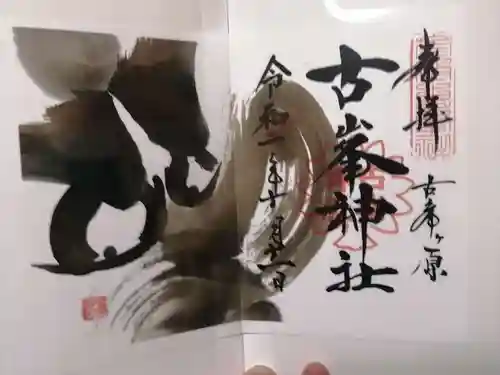 奉拝
古峯ヶ原
古峯神社
令和一年十月十一日